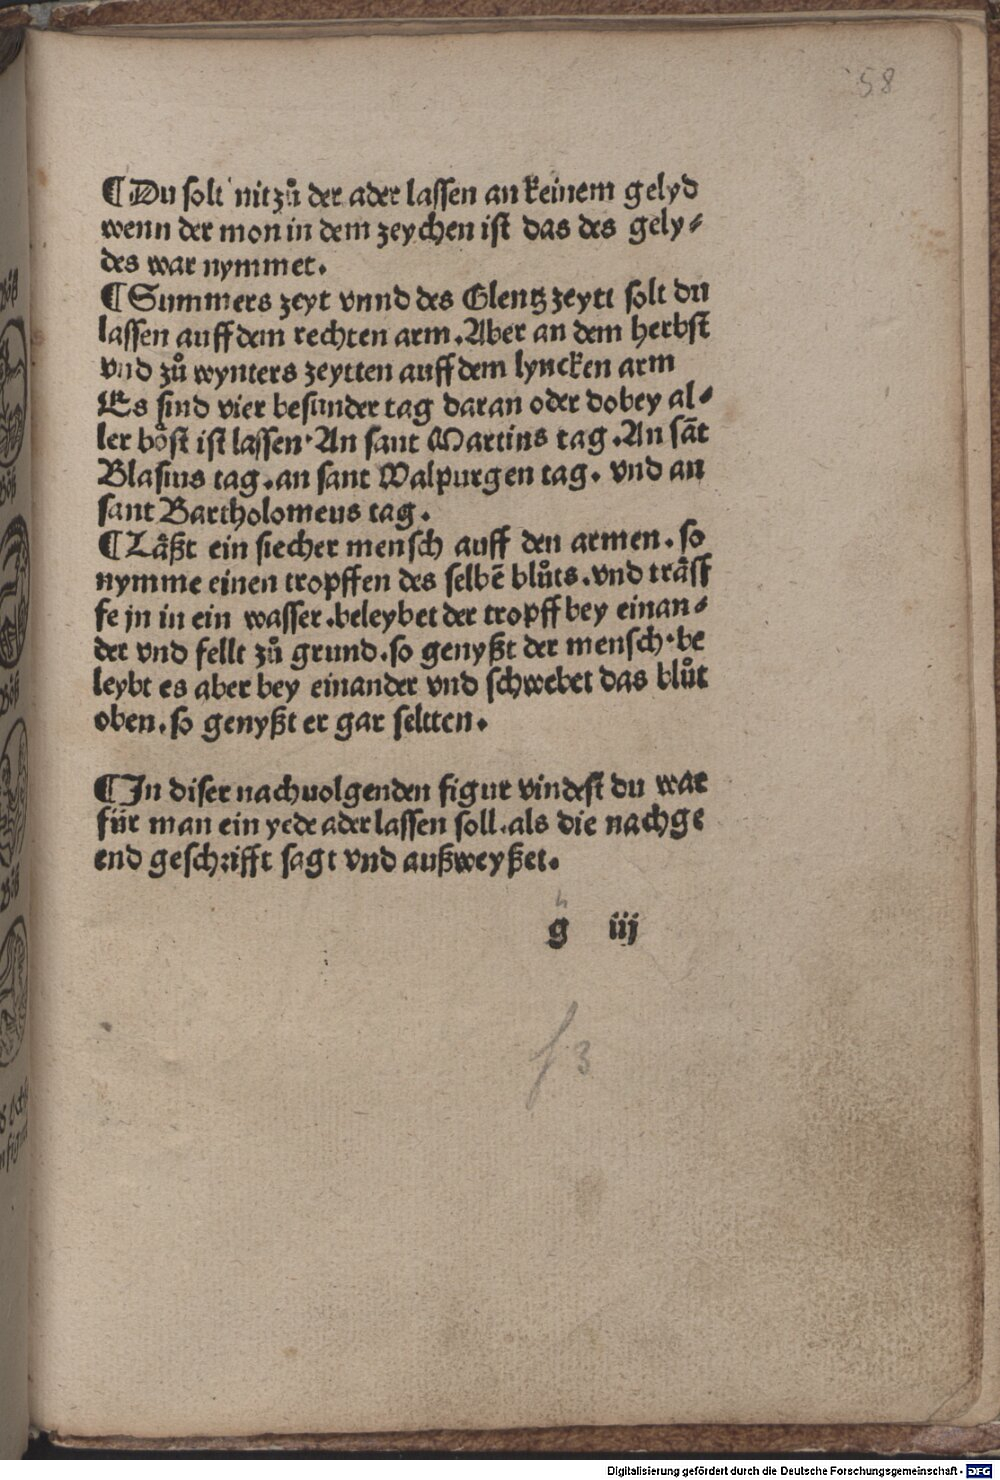 58
¶Du solt nit zů der ader lassen an keinem gelyd
wenn der mon in dem zeychen ist das des gely⸗
des war nymmet.
¶Summers zeyt vnnd des Glentz zeytt solt du
lassen auff dem rechten arm. Aber an dem herbst
vnd zů wynters zeytten auff dem lyncken arm
Es sind vier besunder tag daran oder dobey al⸗
ler boͤst ist lassen· An sant Martins tag. An sāt
Blasius tag. an sant Walpurgen tag. vnd an
sant Bartholomeus tag.
¶Laͤßt ein siecher mensch auff den armen. so
nymme einen tropffen des selbē blůts. vnd traͤff
fe jn in ein wasser. beleybet der tropff bey einan⸗
der vnd fellt zů grund. so genyßt der mensch· be
leybt es aber bey einander vnd schwebet das blůt
oben. so genyßt er gar seltten.
¶In diser nachuolgenden figur vindest du war
für man ein yede ader lassen soll. als die nachge
end geschrifft sagt vnd außweyßet.
g iij
f 3
Digitalisierung gefördert durch die Deutsche Forschungsgemeinschaft - DFG